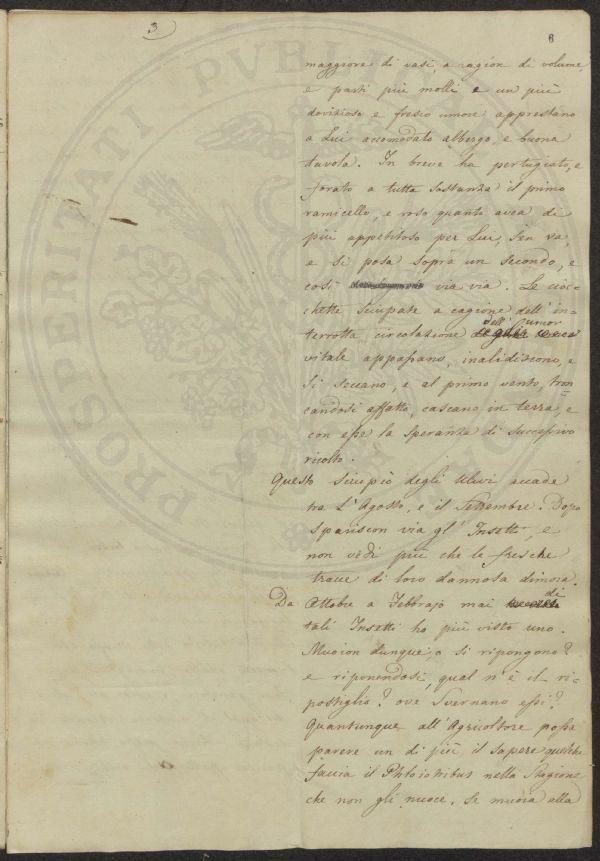 3
6
maggiore di vasi, a ragion di volume,
e parti più molli e un più
dovizioso e fresco umore apprestano
a Lui accomodato albergo, e buona
tavola. In breve ha pertugiato, e
forato a tutta sostanza il primo
ramicello, e roso quanto avea di
più appetitoso per Lui, sen va,
e si posa sopra un secondo, e
così via via. Le cioc-
chette sciupate a cagione dell' in-
terrotta circolazione dell' umor
vitale appassano, inalidiscono, e
si seccano, e al primo vento, tron-
candosi affatto, cascano in terra, e
con esse la speranza di successivo
ricolto.
Questo sciupio degli Ulivi accade
tra l'Agosto, e il Settembre. Dopo
spariscon via gl' Insetti, e
non vedi più che le fresche
tracce di loro dannosa dimora.
Da Ottobre a Febbrajo mai di
tali Insetti ho più visto uno.
Muoion dunque, o si ripongono?
e riponendosi, qual n' è il ri-
postiglio? ove svernano essi?
Quantunque all' Agricoltore possa
parere un di più, il sapere quelche
faccia il Phloiotribus nella stagione
che non gli nuoce, se muoia alla
PROSPERITATI PVBLICAE